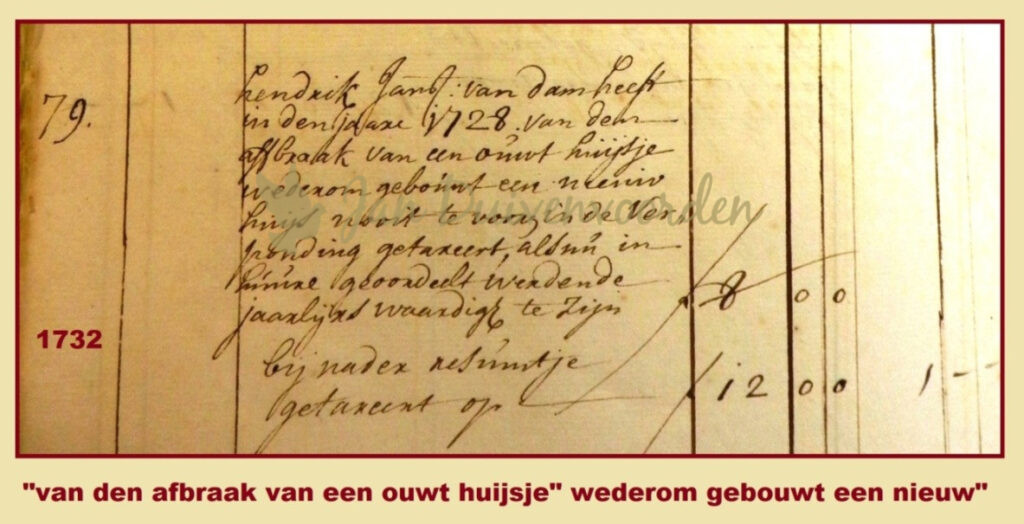 79.
hendrik Jans: van dam heeft
in den jaare 1728 van den
affbraak van een ouwt huijsje
wederom gebouwt een nieuw
huijs nooit te vooren in de Ver
ponding getaxeert, alsnú in
húúre geoordeelt werdende
jaarlijks waardig te Zijn 8 0 0
bij nader resúmtje
getaxeert op 12 0 0 1 - -
Jan Duivenvoorden
1732
"van den afbraak van een ouwt huijsje" wederom gebouwt een nieuw"